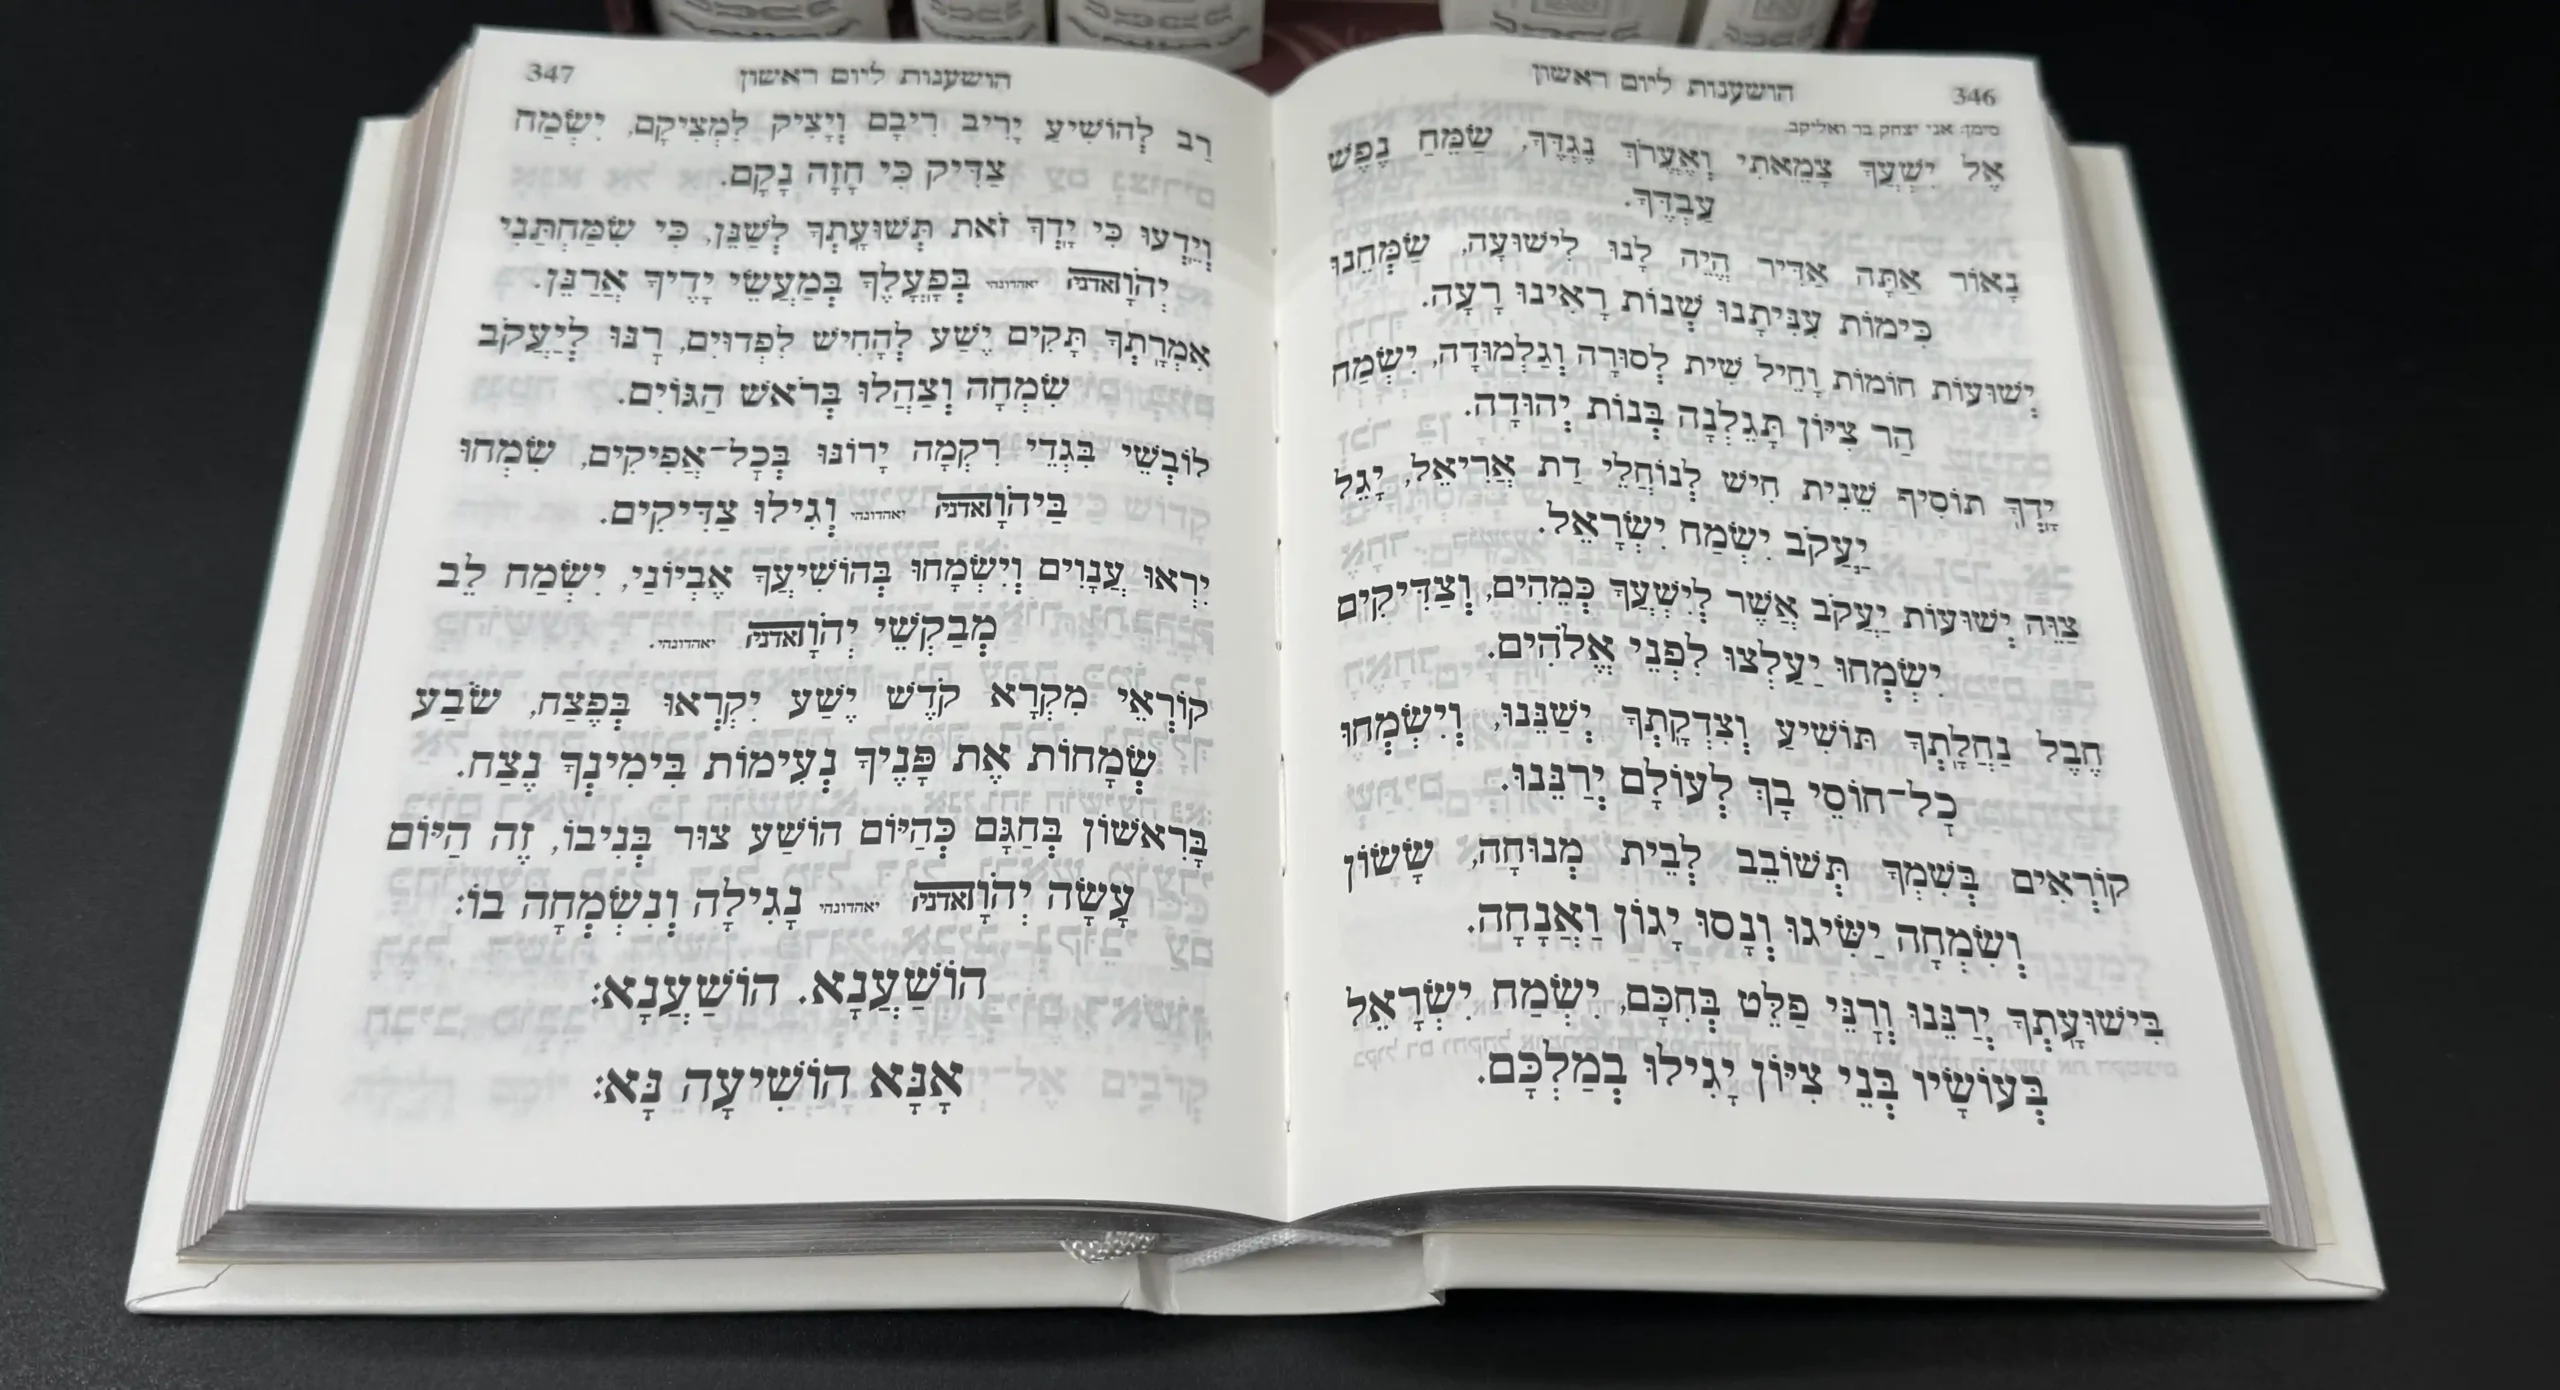 346
הושענות ליום ראשון
סימן: אני יצחק בר ואליקב.
אֵל יִשְׁעֲךָ צָמֵאתִי וְאֶעֱרֹךְ נֶגְדֶּךָ, שַׂמֵּחַ נֶפֶשׁ
עַבְדֶּךָ.
נָאוֹר אַתָּה אַדִּיר הֱיֵה לָנוּ לִישׁוּעָה, שַׂמְּחֵנוּ
כִּימוֹת עִנִּיתָנוּ שְׁנוֹת רָאִינוּ רָעָה.
יְשׁוּעוֹת חוֹמוֹת וָחֵיל שִׁית לְסוּרָה וְגַלְמוּדָה, יִשְׂמַח
הַר צִיּוֹן תָּגֵלְנָה בְּנוֹת יְהוּדָה.
יָדְךָ תּוֹסִיף שֵׁנִית חִישׁ לְנוֹחֲלֵי דַת אֲרִיאֵל, יָגֵל
יַעֲקֹב יִשְׂמַח יִשְׂרָאֵל.
צַוֵּה יְשׁוּעוֹת יַעֲקֹב אֲשֶׁר לְיִשְׁעֲךָ כְּמֵהִים, וְצַדִּיקִים
יִשְׂמְחוּ יַעַלְצוּ לִפְנֵי אֱלֹהִים.
חֶבֶל נַחֲלָתְךָ תּוֹשִׁיעַ וְצִדְקָתְךָ יְשַׁנֵּנוּ, וְיִשְׂמְחוּ
כָל־חוֹסֵי בָךְ לְעוֹלָם יְרַנֵּנוּ.
קוֹרְאִים בְּשִׁמְךָ תְּשׁוֹבֵב לְבֵית מְנוּחָה, שָׂשׂוֹן
וְשִׂמְחָה יַשִּׂיגוּ וְנָסוּ יָגוֹן וַאֲנָחָה.
בִּישׁוּעָתְךָ יְרַנֵּנוּ וְרָנֵּי פַלֵּט בְּחִכָּם, יִשְׂמַח יִשְׂרָאֵל
בְּעוֹשָׂיו בְּנֵי צִיּוֹן יָגִילוּ בְמַלְכָּם.
347
הושענות ליום ראשון
רַב לְהוֹשִׁיעַ יָרִיב רִיבָם וְיָצִיק לִמְצִיקָם, יִשְׂמַח
צַדִּיק כִּי חָזָה נָקָם.
וְיֵדְעוּ כִּי יָדְךָ זֹאת תְּשׁוּעָתְךָ לְשַׁנֵּן, כִּי שִׂמַּחְתַּנִי
יְהֹוָה אדני יאהדונהי בְּפָעֳלֶךָ בְּמַעֲשֵׂי יָדֶיךָ אֲרַנֵּן.
אִמְרָתְךָ תָּקִים יֶשַׁע לְהָחִישׁ לִפְדוּיִם, רָנּוּ לְיַעֲקֹב
שִׂמְחָה וְצַהֲלוּ בְּרֹאשׁ הַגּוֹיִם.
לוֹבְשֵׁי בִּגְדֵי רִקְמָה יָרוֹנּוּ בְּכָל־אֲפִיקִים, שִׂמְחוּ
בַּיהֹוָה אדני יאהדונהי וְגִילוּ צַדִּיקִים.
יִרְאוּ עֲנָוִים וְיִשְׂמָחוּ בְּהוֹשִׁיעֲךָ אֶבְיוֹנַי, יִשְׂמַח לֵב
מְבַקְשֵׁי יְהֹוָה אדני יאהדונהי.
קוֹרְאֵי מִקְרָא קֹדֶשׁ יֶשַׁע יִקְרְאוּ בְּפֶצַח, שֹׂבַע
שְׂמָחוֹת אֶת פָּנֶיךָ נְעִימוֹת בִּימִינְךָ נֶצַח.
בָּרִאשׁוֹן בְּחַגָּם כְּהַיּוֹם הוֹשַׁע צוּר בְּנִיבוֹ, זֶה הַיּוֹם
עָשָׂה יְהֹוָה אדני יאהדונהי נָגִילָה וְנִשְׂמְחָה בוֹ:
הוֹשַׁעֲנָא. הוֹשַׁעֲנָא:
אָנָּא הוֹשִׁיעָה נָּא: